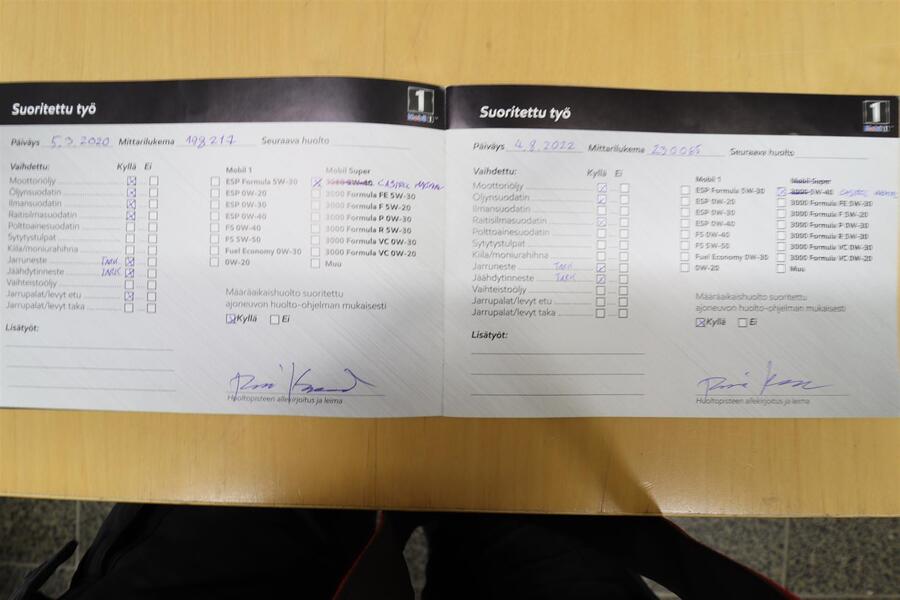 Suoritettu työ
1
Mobil 1
Päiväys 5.3.2020 Mittarilukema 198217 Seuraava huolto
Vaihdettu: Kyllä Ei
Moottoriöljy
Öljynsuodatin
Ilmansuodatin
Raitisilmasuodatin
Polttoainesuodatin
Sytytystulpat
Kiila/moniurahihna
Jarruneste TARK
Jäähdytinneste TARK
Vaihteistoöljy
Jarrupalat/levyt etu
Jarrupalat/levyt taka
Lisätyöt:
Mobil 1
ESP Formula 5W-30
ESP 0W-20
ESP 0W-30
ESP 0W-40
FS 0W-40
FS 5W-50
Fuel Economy 0W-30
0W-20
Mobil Super
3000 5W-40
3000 Formula FE 5W-30
3000 Formula F 5W-20
3000 Formula P 0W-30
3000 Formula R 5W-30
3000 Formula VC 0W-30
3000 Formula VC 0W-20
Muu
Määräaikaishuolto suoritettu
ajoneuvon huolto-ohjelman mukaisesti
Kyllä Ei
Huoltopisteen allekirjoitus ja leima
Suoritettu työ
1
Mobil 1
Päiväys 4.8.2022 Mittarilukema 230065 Seuraava huolto
Vaihdettu: Kyllä Ei
Moottoriöljy
Öljynsuodatin
Ilmansuodatin
Raitisilmasuodatin
Polttoainesuodatin
Sytytystulpat
Kiila/moniurahihna
Jarruneste TARK
Jäähdytinneste TARK
Vaihteistoöljy
Jarrupalat/levyt etu
Jarrupalat/levyt taka
Lisätyöt:
Mobil 1
ESP Formula 5W-30
ESP 0W-20
ESP 0W-30
ESP 0W-40
FS 0W-40
FS 5W-50
Fuel Economy 0W-30
0W-20
Mobil Super
3000 5W-40
3000 Formula FE 5W-30
3000 Formula F 5W-20
3000 Formula P 0W-30
3000 Formula R 5W-30
3000 Formula VC 0W-30
3000 Formula VC 0W-20
Muu
Määräaikaishuolto suoritettu
ajoneuvon huolto-ohjelman mukaisesti
Kyllä Ei
Huoltopisteen allekirjoitus ja leima